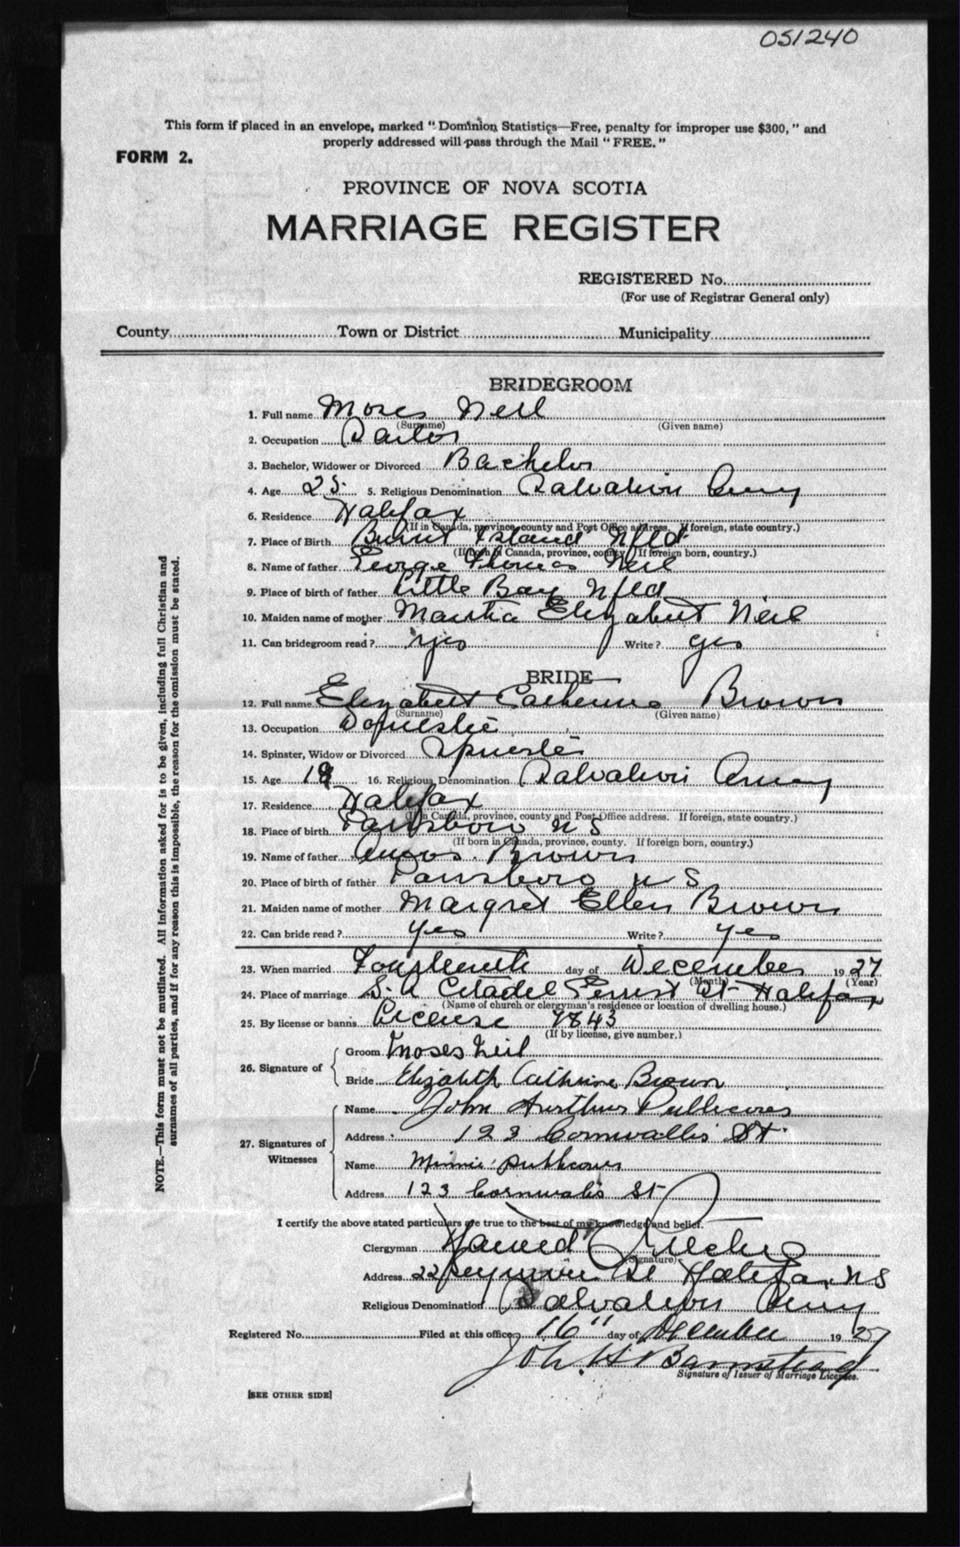 051240
This form if placed in an envelope, marked "Dominion Statistics—Free, penalty for improper use $300," and
properly addressed will pass through the Mail "FREE."
FORM 2.
PROVINCE OF NOVA SCOTIA
MARRIAGE REGISTER
REGISTERED No.
(For use of Registrar General only)
County Town or District Municipality
BRIDEGROOM
1. Full name Moses Neil
(Surname) (Given name)
2. Occupation Sailor
3. Bachelor, Widower or Divorced Bachelor
4. Age 25 5. Religious Denomination Salvation Army
6. Residence Halifax
(If in Canada, province, county and Post Office address. If foreign, state country.)
7. Place of Birth Burnt Island Nfld
(If born in Canada, province, county. If foreign born, country.)
8. Name of father George Thomas Neil
9. Place of birth of father Little Bay Nfld
10. Maiden name of mother Martha Elizabeth Neil
11. Can bridegroom read? yes Write? yes
BRIDE
12. Full name Elizabeth Catherine Brown
(Surname) (Given name)
13. Occupation Domestic
14. Spinster, Widow or Divorced Spinster
15. Age 18 16. Religious Denomination Salvation Army
17. Residence Halifax
(If in Canada, province, county and Post Office address. If foreign, state country.)
18. Place of birth Parrsboro N S
(If born in Canada, province, county. If foreign born, country.)
19. Name of father Amos Brown
20. Place of birth of father Parrsboro N S
21. Maiden name of mother Margret Ellen Brown
22. Can bride read? yes Write? yes
23. When married Fourteenth day of December 1927
(Month) (Year)
24. Place of marriage S. A Citadel St Halifax
(Name of church or clergyman's residence or location of dwelling house.)
25. By license or banns License 7843
(If by license, give number.)
26. Signature of
Groom Moses Neil
Bride Elizabeth Catherine Brown
27. Signatures of Witnesses
Name John
Address 123 Cornwallis St
Name Minnie
Address 123 Cornwalis St
I certify the above stated particulars are true to the best of my knowledge and belief.
Clergyman
(Signature)
Address 22 Seymour St Halifax N S
Religious Denomination Salvation Army
Registered No. Filed at this office 16" day of December 1927
John H Barnstead
Signature of Issuer of Marriage Licenses.
[SEE OTHER SIDE]
NOTE.—This form must not be mutilated. All information asked for is to be given, including full Christian and
surnames of all parties, and if for any reason this is impossible, the reason for the omission must be stated.